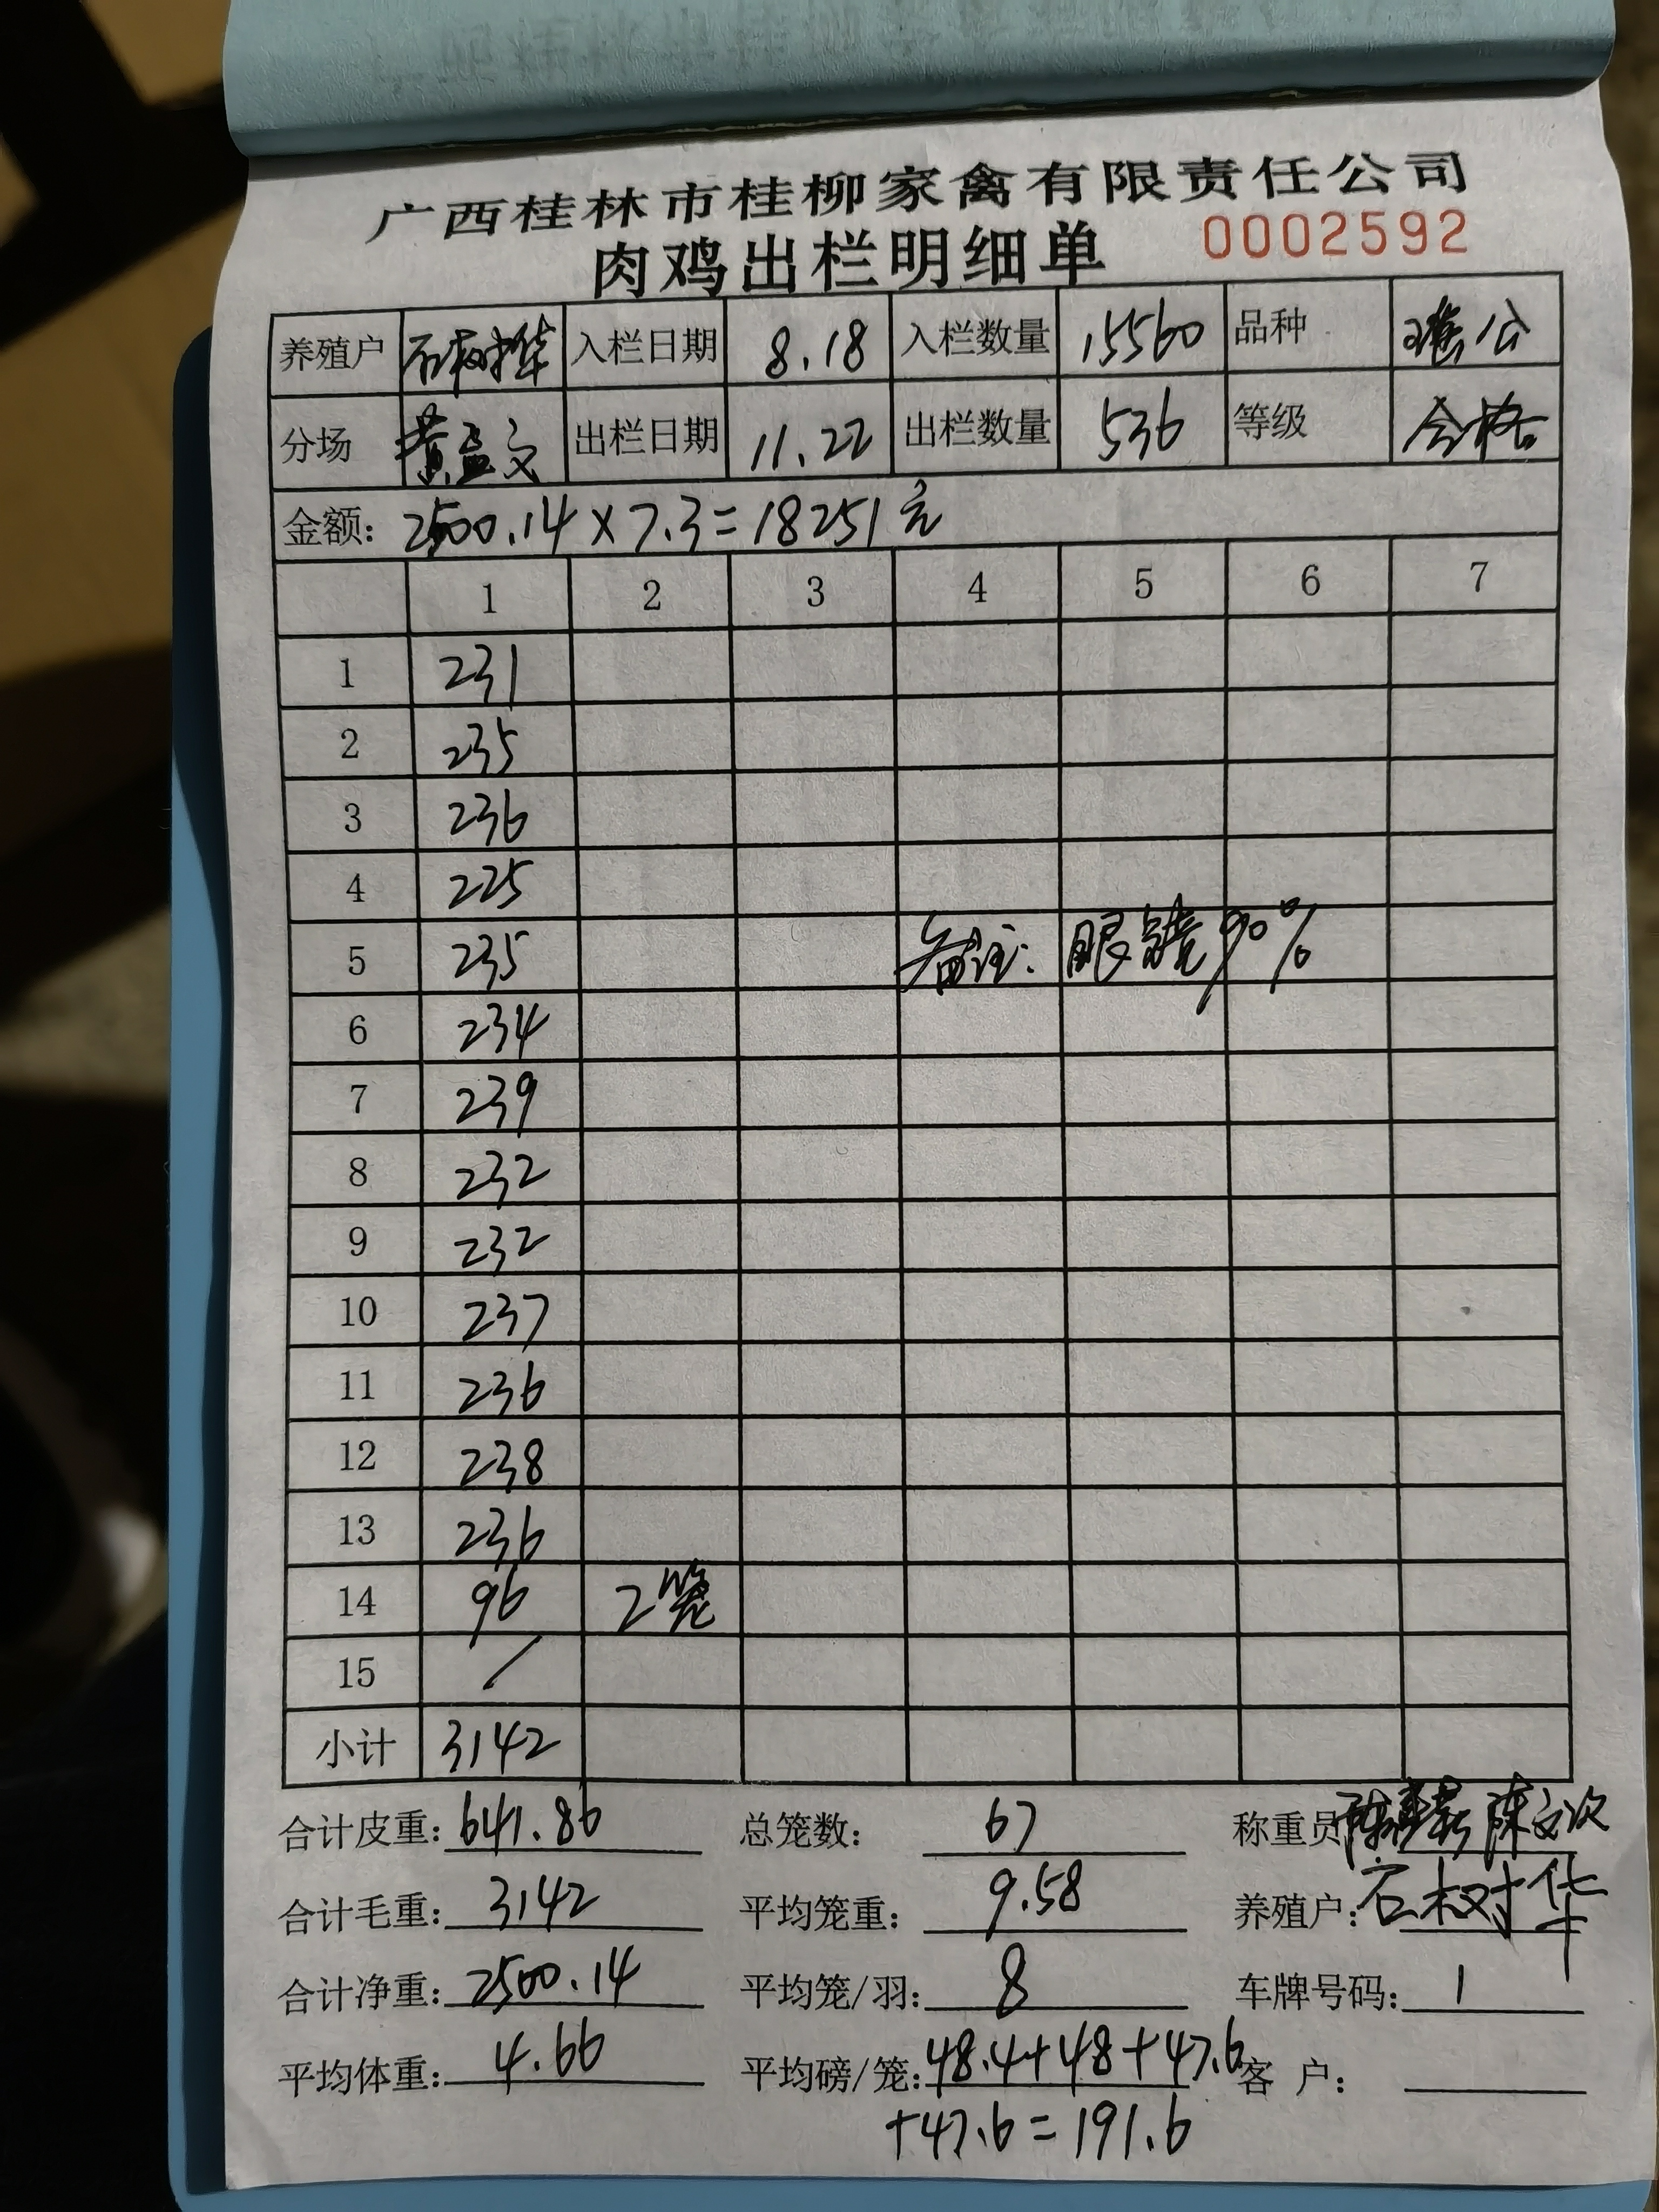 广西桂林市桂柳家禽有限责任公司
肉鸡出栏明细单 0002592
养殖户 石树华 入栏日期 8.18 入栏数量 15560 品种 瑶公
分场 黄孟文 出栏日期 11.22 出栏数量 536 等级 合格
金额: 2500.14×7.3=18251元
1 2 3 4 5 6 7
1 231
2 235
3 236
4 225
5 235 备注: 眼镜90%
6 234
7 239
8 232
9 232
10 237
11 236
12 238
13 236
14 96 2笼
15 /
小计 3142
合计皮重: 641.86 总笼数: 67 称重员 陈文次
合计毛重: 3142 平均笼重: 9.58 养殖户: 石树华
合计净重: 2500.14 平均笼/羽: 8 车牌号码: 1
平均体重: 4.66 平均磅/笼: 48.4+48+47.6 客 户:
+47.6=191.6